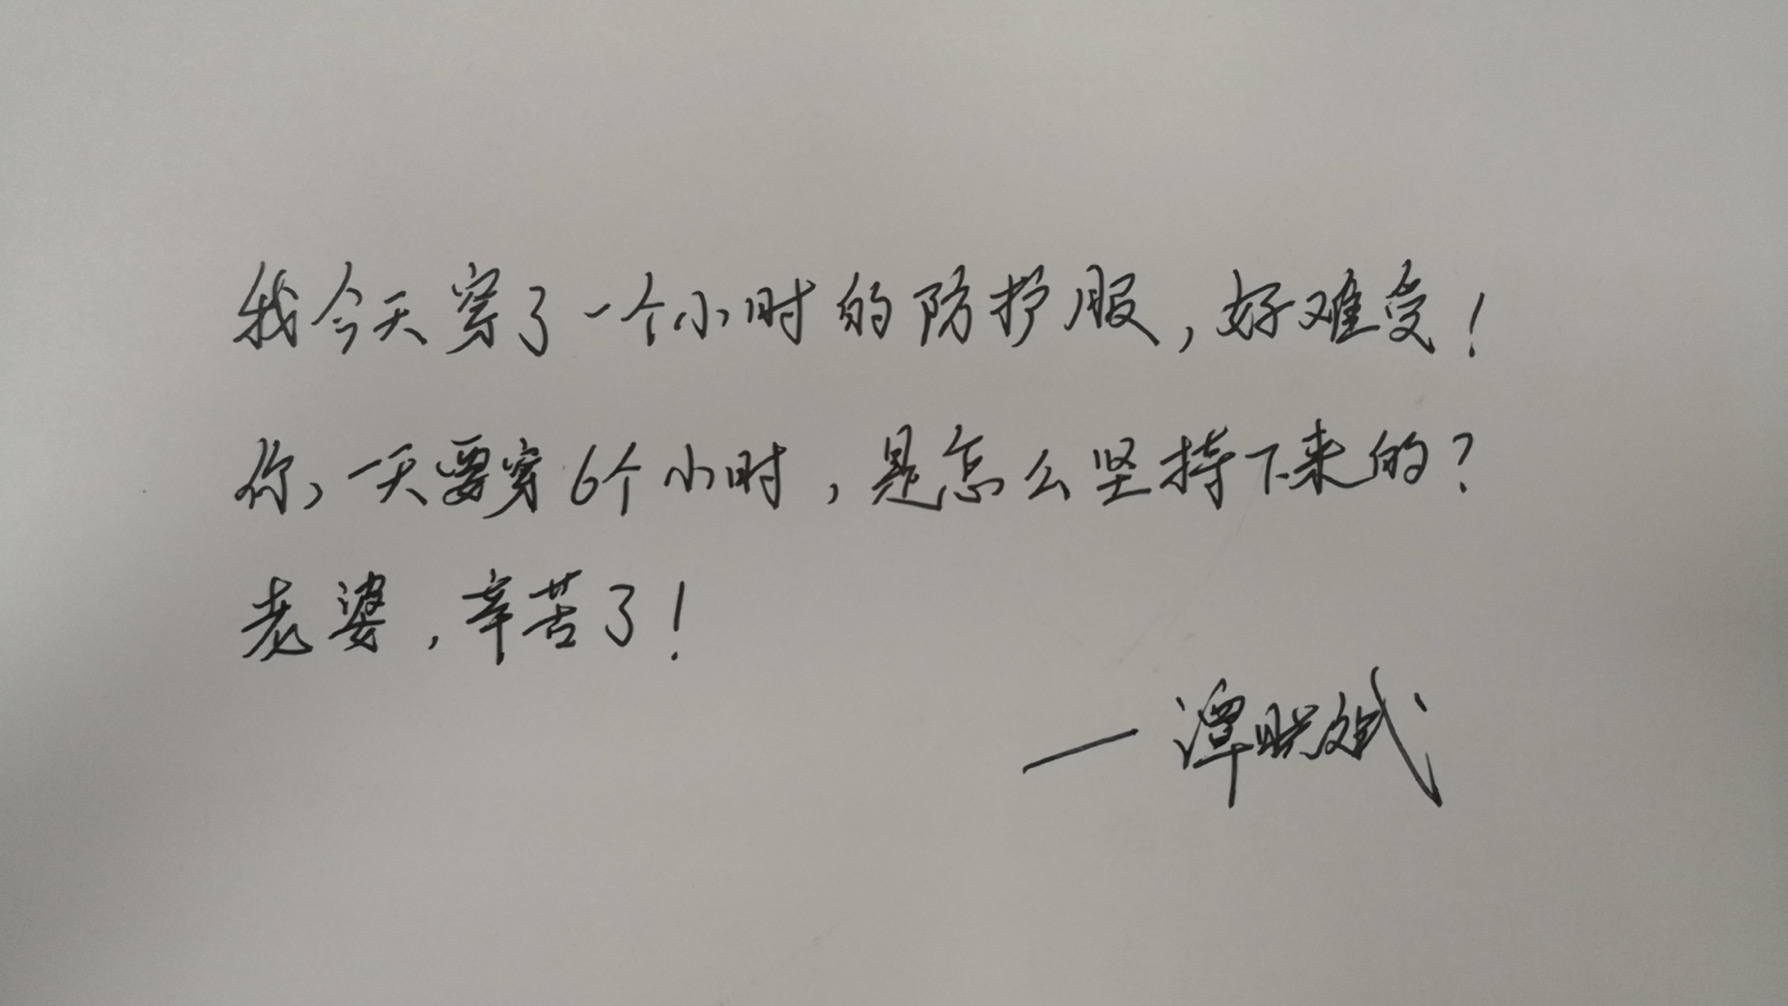 我今天穿了一个小时的防护服,好难受!
你,一天要穿6个小时,是怎么坚持下来的?
老婆,辛苦了!
—谭斌